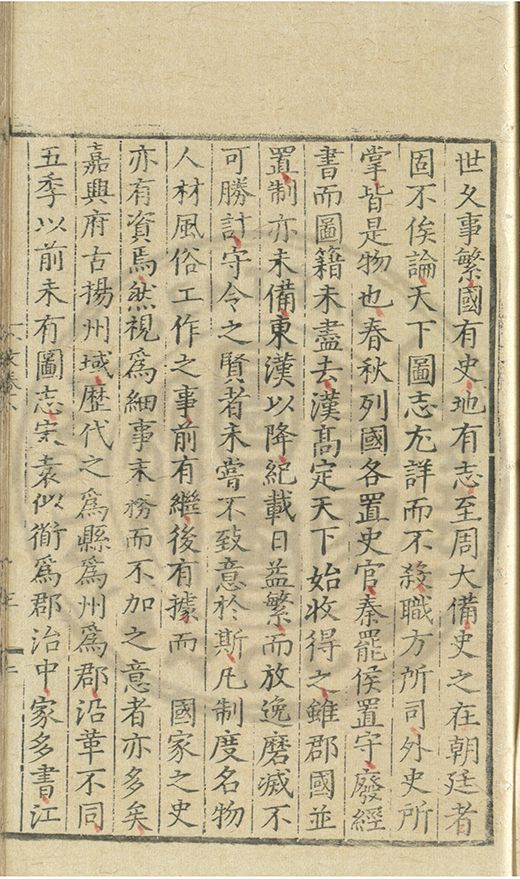 世文事繁國有史地有志至周大備史之在朝廷者
固不俟論天下圖志尤詳而不殺職方所司外史所
掌皆是物也春秋列國各置史官秦罷侯置守廢經
書而圖籍未盡去漢高定天下始收得之雖郡國並
置制亦未備東漢以降紀載日益繁而放逸磨滅不
可勝計守令之賢者未嘗不致意於斯凡制度名物
人材風俗工作之事前有繼後有據而國家之史
亦有資焉然視爲細事末務而不加之意者亦多矣
嘉興府古揚州域歷代之爲縣爲州爲郡沿革不同
五季以前未有圖志宋袁似衟爲郡治中家多書江